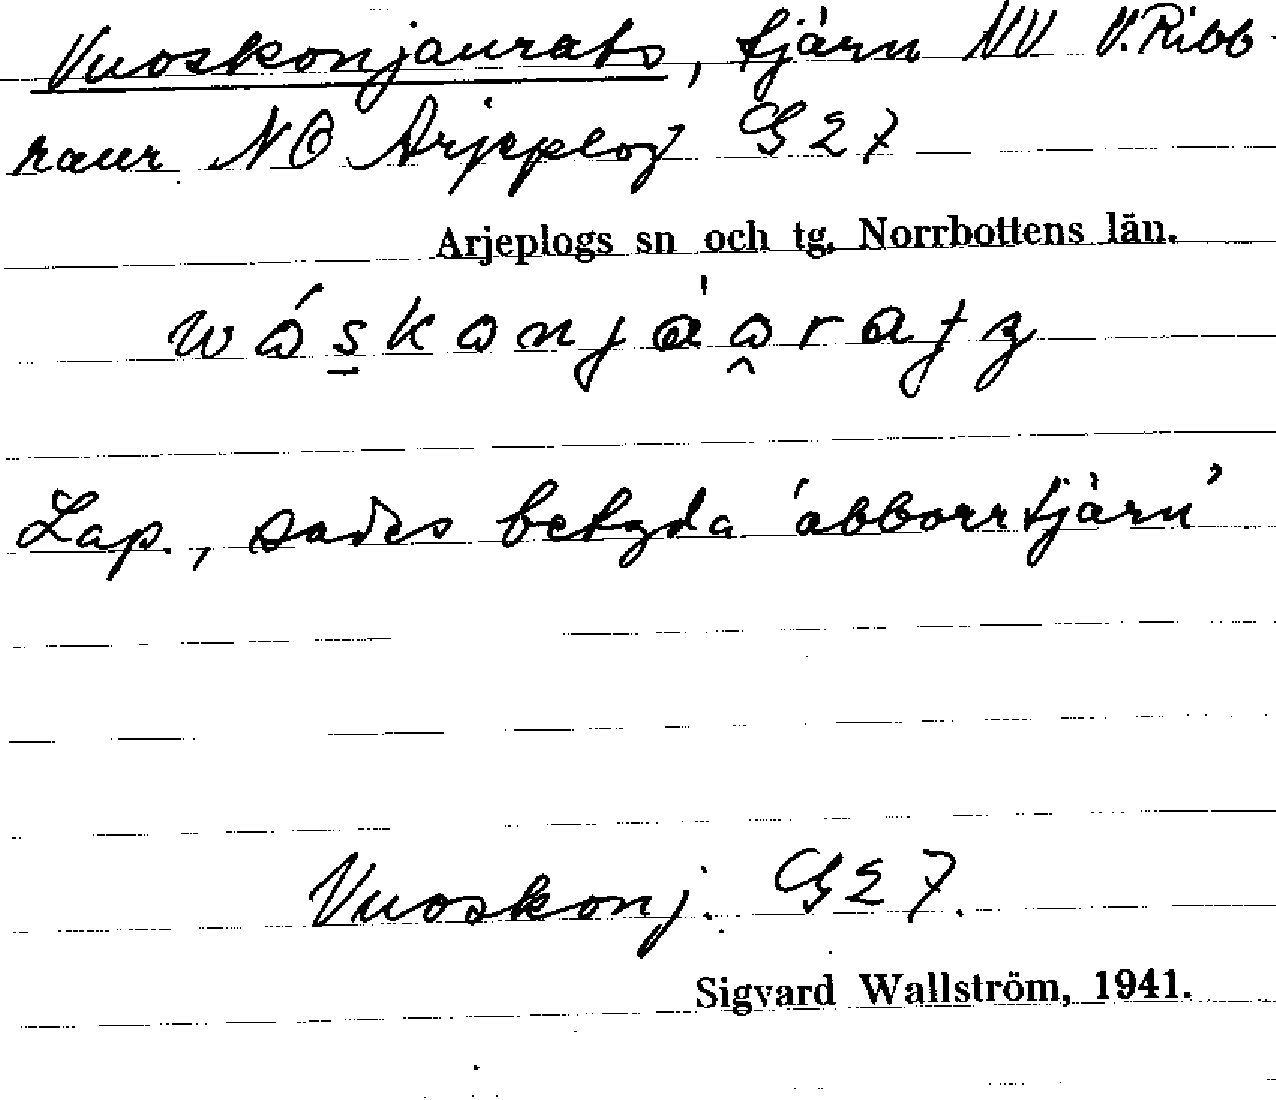 Vuoskonjaurats, tjärn NV V. Ribb-
raur NO Arjeplog G27
Arjeplogs sn och tg. Norrbottens län.
Lap., sades betyda 'abborrtjärn'
Vuoskonj. G27.
Sigvard Wallström, 1941.